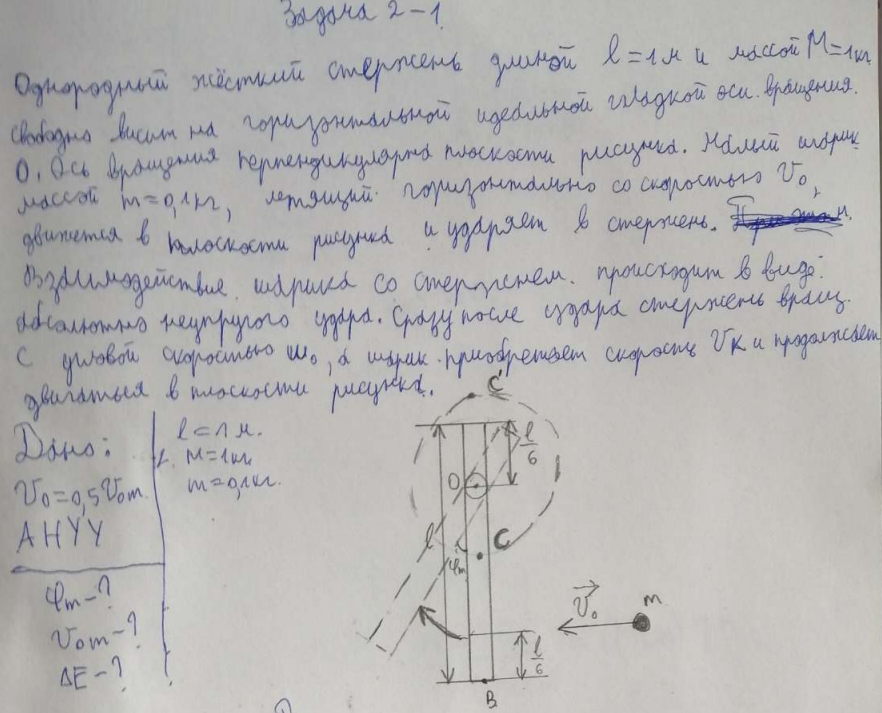 Задача 2-1
Однородный жёсткий стержень длиной l=1м и массой M=1кг
свободно висит на горизонтальной идеальной гладкой оси вращения.
О. Ось вращения перпендикулярна плоскости рисунка. Малый шарик
массой m=0,1кг, летящий горизонтально со скоростью V₀,
движется в плоскости рисунка и ударяет в стержень.
Взаимодействие шарика со стержнем. происходит в виде:
абсолютно неупругого удара. Сразу после удара стержень вращ.
с угловой скоростью ω₀, а шарик приобретает скорость Vк и продолжает
двигаться в плоскости рисунка.
Дано:
V₀=0,5V₀m
АНУУ
φm-?
V₀m-?
ΔE-?
l=1м.
M=1кг
m=0,1кг.
C'
l/6
O
l
φm
C
V₀
m
l/6
B